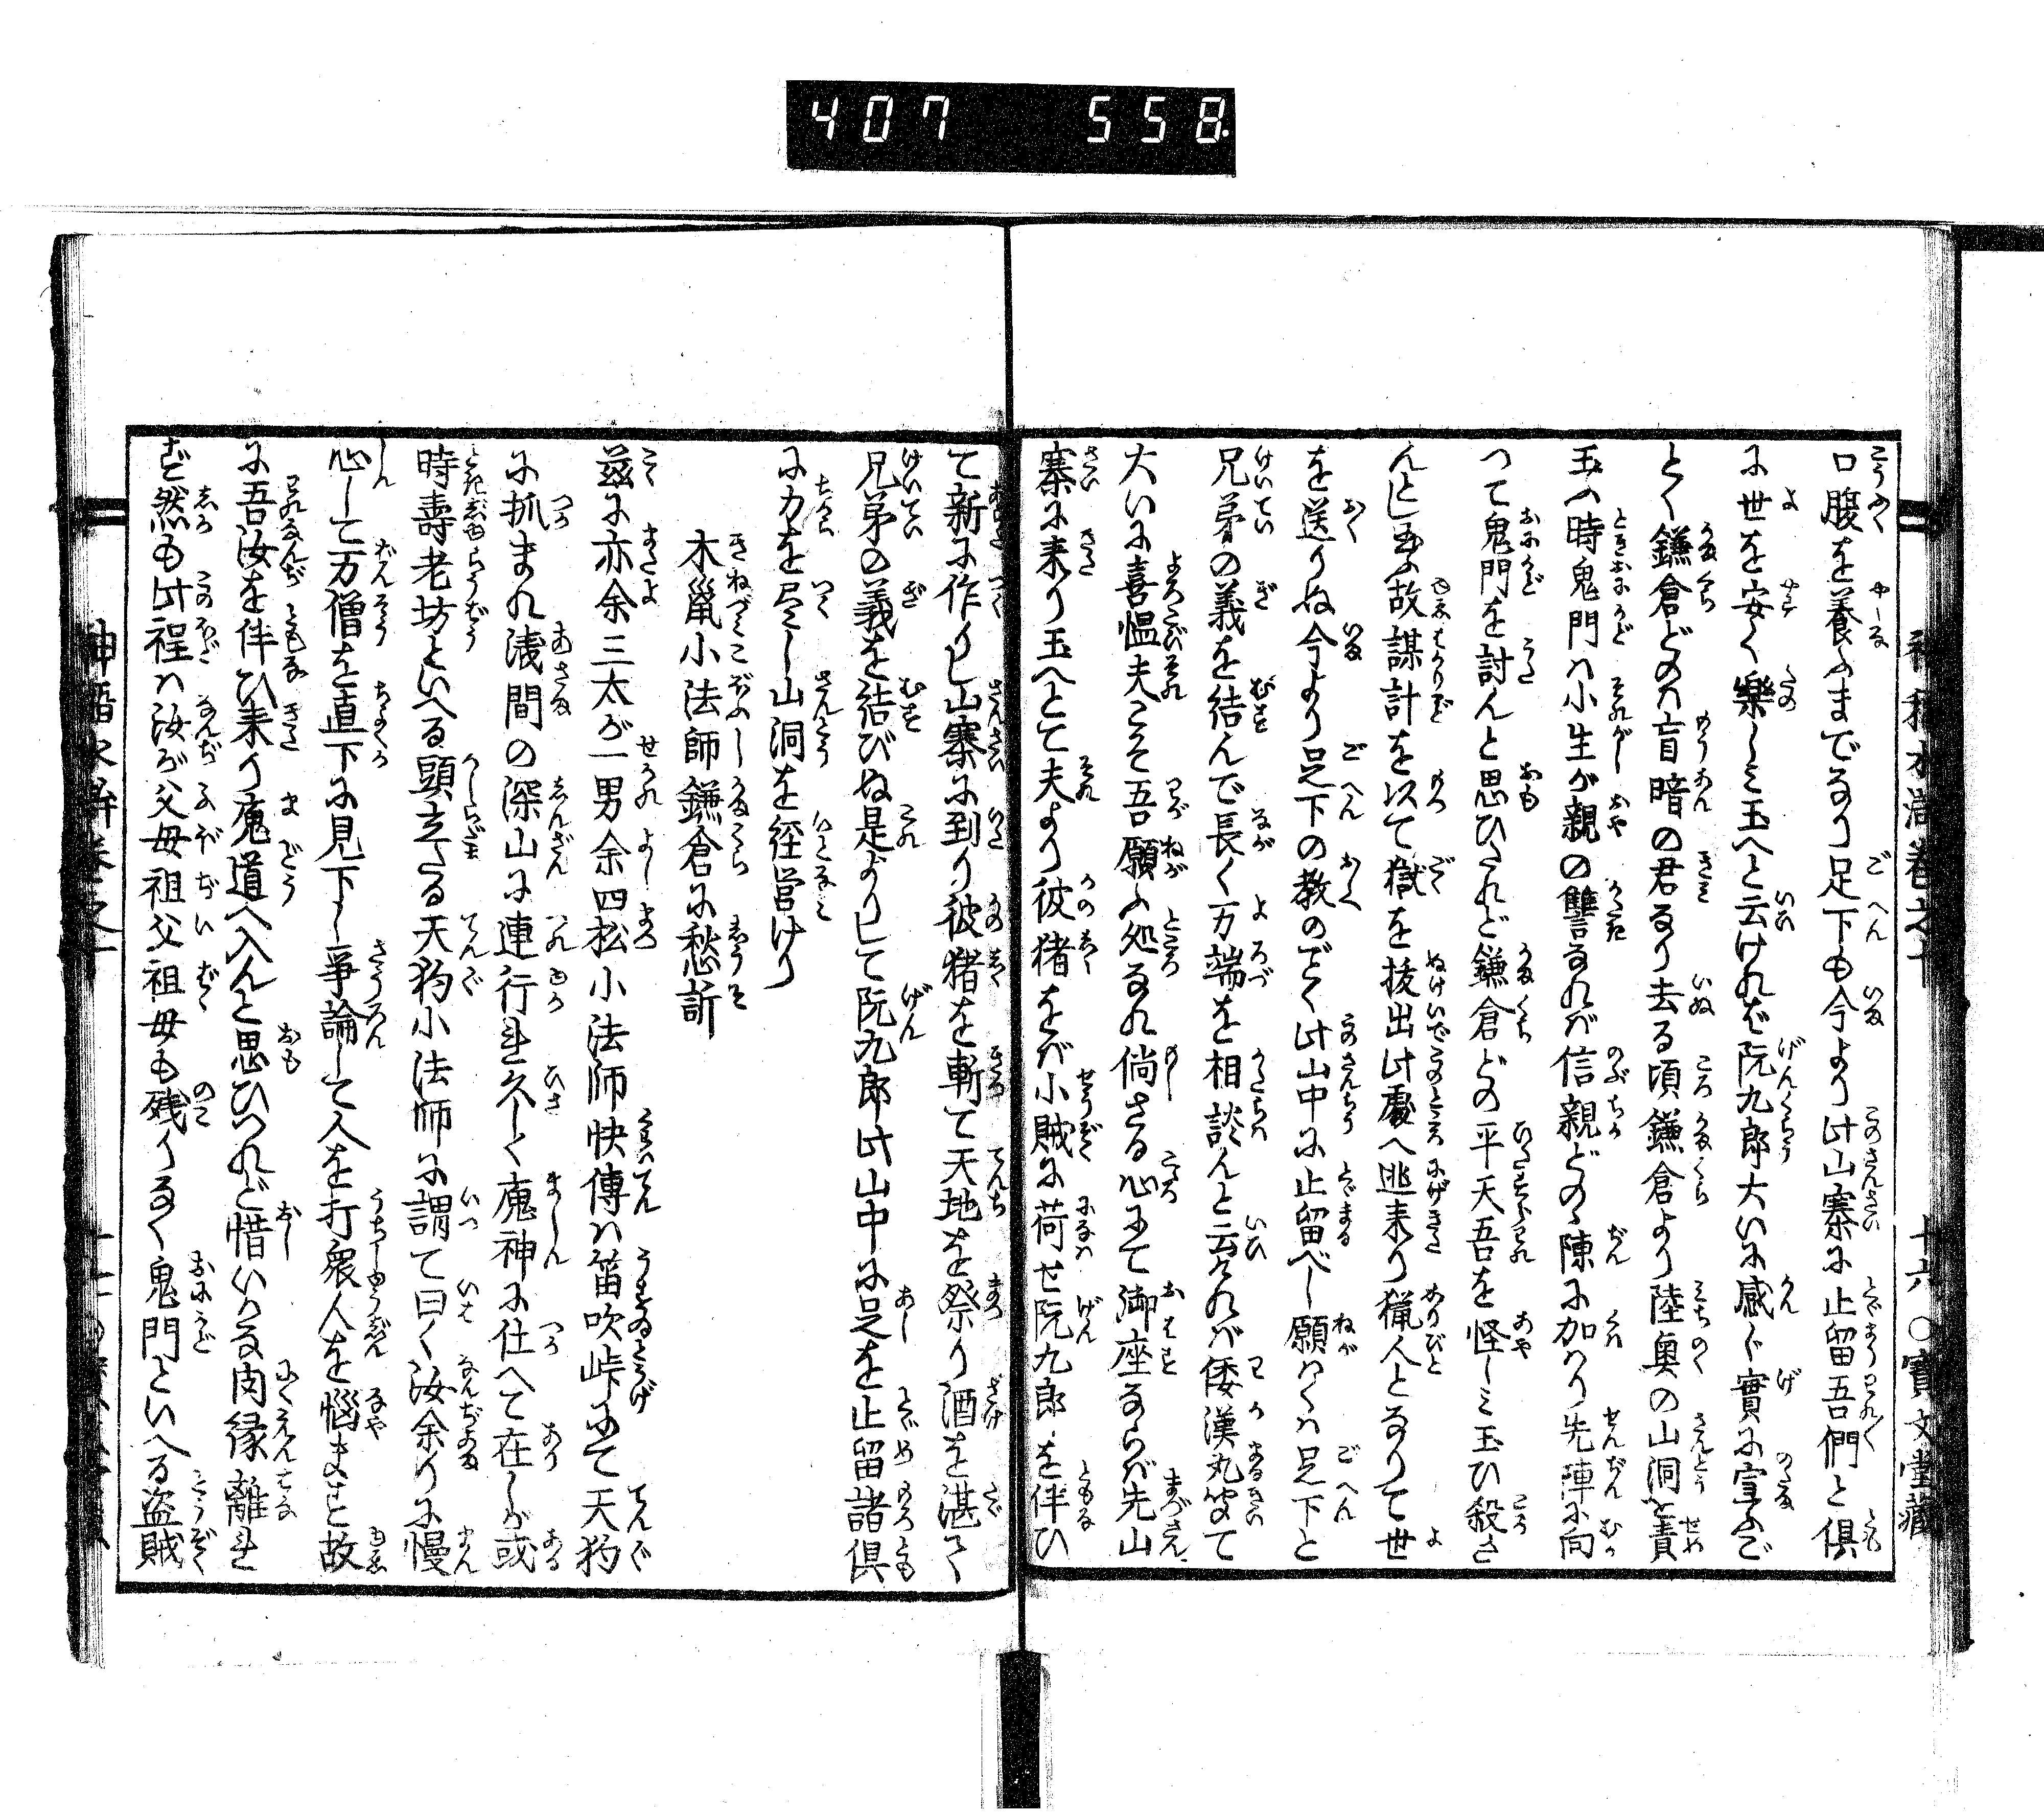 407 558
口腹を養ふまでなり足下も今より此山寨に止留吾們と倶
に世を安く樂しミ玉へと云けれバ阮九郎大いに感じ實に宣ふご
とく鎌倉どのハ盲暗の君なり去る頃鎌倉より陸奥の山洞を責
玉ふ時鬼門ハ小生が親の讐なれバ信親どのゝ陳に加ハり先陣に向
つて鬼門を討んと思ひたれど鎌倉どの平天吾を怪しミ玉ひ殺さ
んとし玉ふ故謀計を以て獄を抜出此處へ逃来り獵人となりて世
を送りぬ今より足下の教のごとく此山中に止留べし願ハくハ足下と
兄弟の義を結んで長く万端を相談んと云けれバ倭漢丸笑て
大いに喜愠夫こそ吾願ふ処なれ倘さる心にて御座ならバ先山
寨に来り玉へとて夫より彼猪をバ小賊に荷せ阮九郎を伴ひ
て新に作りし山寨に到り彼猪を斬て天地を祭り酒を湛て
兄弟の義を結びぬ是よりして阮九郎此山中に足を止留諸倶
に力を尽し山洞を経営けり
木嵐小法師鎌倉に愁訴
茲に亦余三太が一男余四松小法師快傳ハ笛吹峠にて天狗
に抓まれ淺間の深山に連行れ久しく魔神に仕へて在しが或
時壽老坊といへる頭立たる天狗小法師に謂て曰く汝余りに慢
心して万僧を直下に見下し爭論して人を打衆人を惱ます故
に吾汝を伴ひ来り魔道へ入んと思ひつれど惜いかな肉縁離れ
ず然も此程ハ汝が父母祖父祖母も残りなく鬼門といへる盗賊